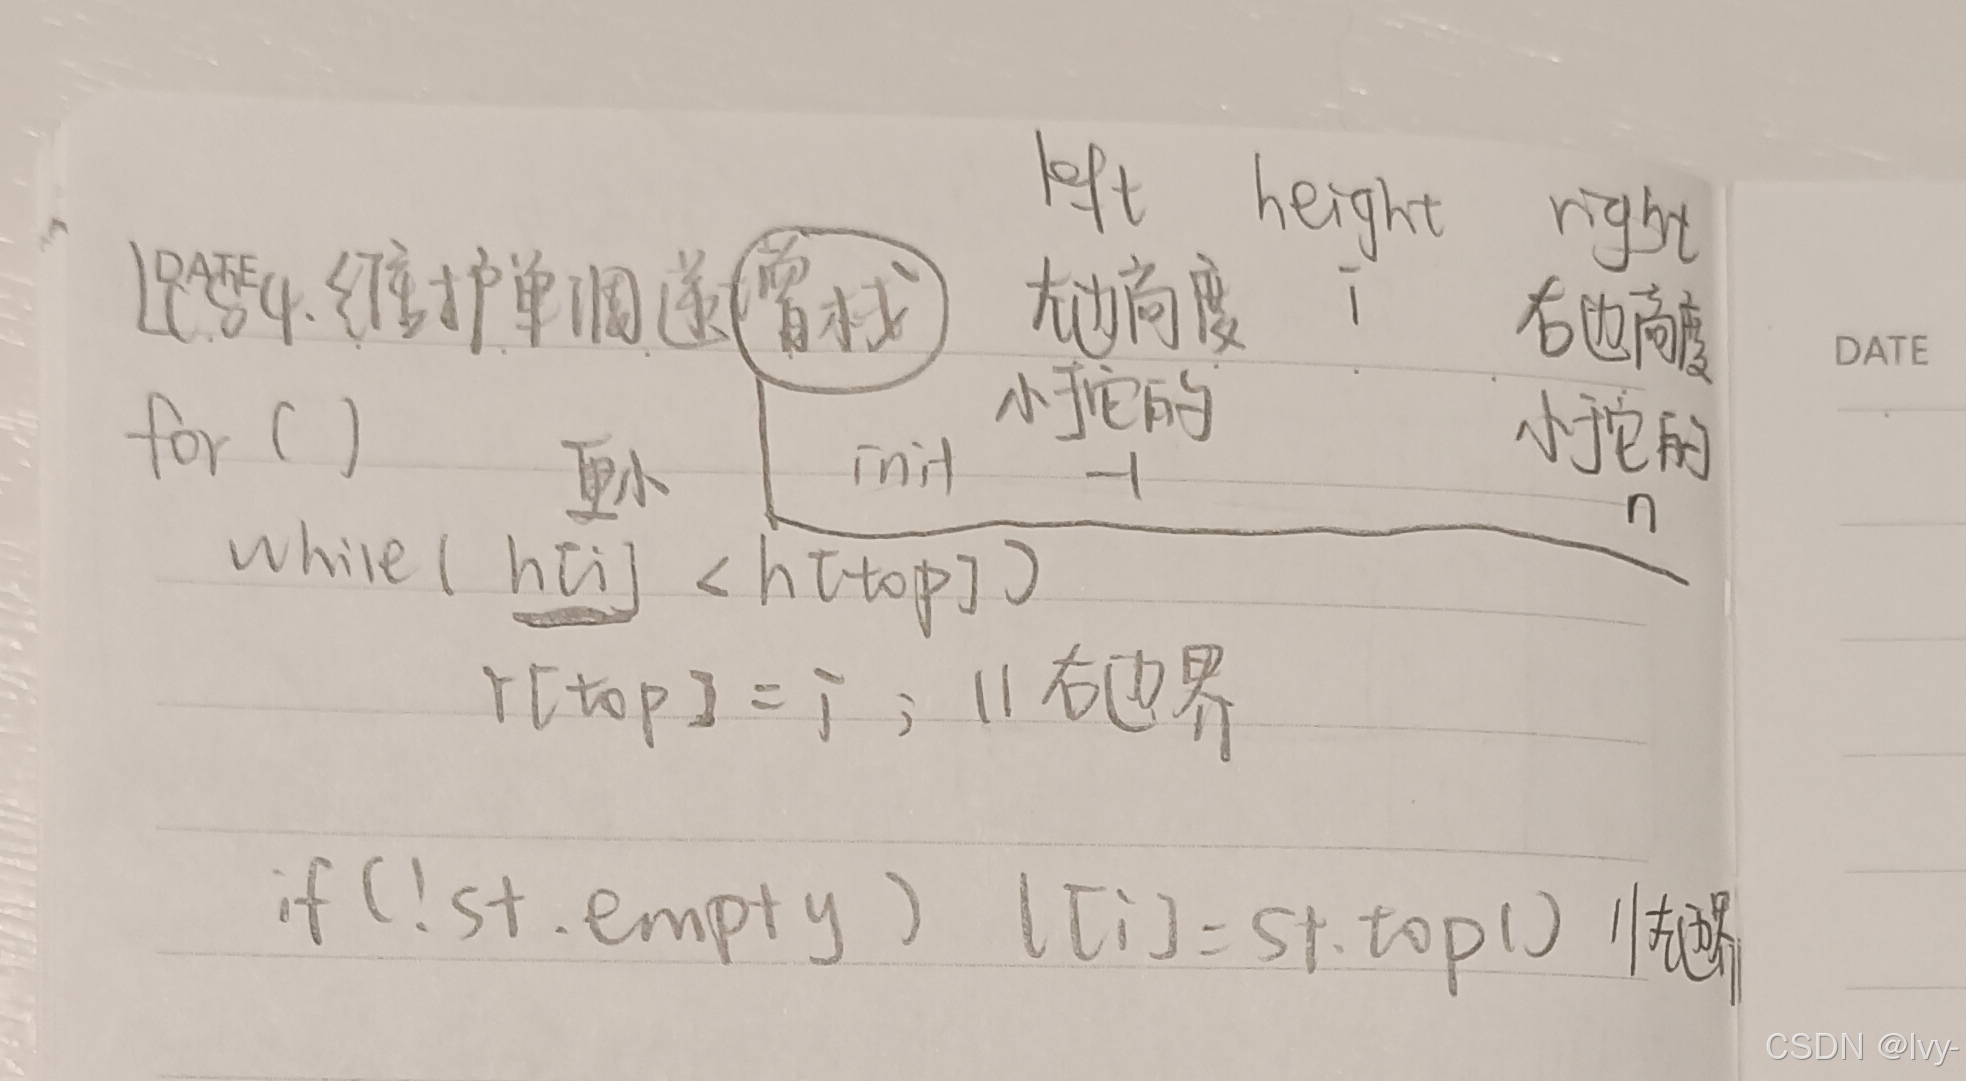 left height right
DATE
LC84.维护单调递增栈
左边高度 i 右边高度
小于它的 小于它的
for ( )
init -1 n
更小
while( h[i] < h[top] )
r[top] = i ; // 右边界
if(!st.empty) l[i]=st.top() //左边界
DATE
CSDN @lvy-